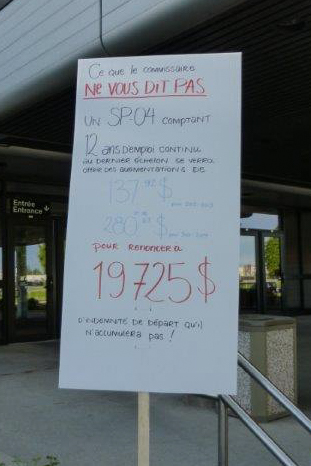 Ce que le commissaire
NE VOUS DIT PAS
UN SP-04 comptant
12 ans d'emploi continu
au dernier échelon se verra
offrir des augmentations de
137 $
280 $
pour renoncer à
19725 $
D'indemnité de départ qu'il
n'accumulera pas !
Entrée
Entrance